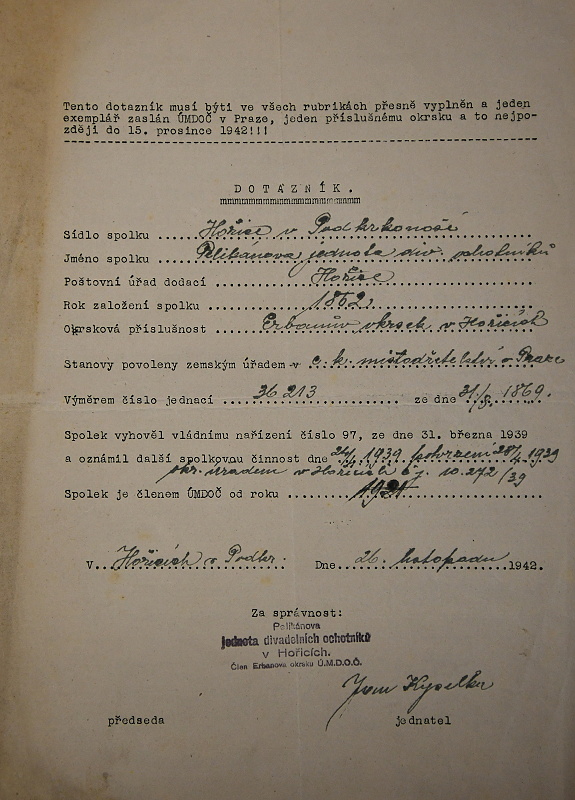 Tento dotazník musí býti ve všech rubrikách přesně vyplněn a jeden
exemplář zaslán ÚMDOČ v Praze, jeden příslušnému okrsku a to nejpo-
zději do 15. prosince 1942!!!
DOTAZNÍK.
Sídlo spolku Hořice v Podkrkonoší
Jméno spolku Pelikánova jednota div. ochotníků
Poštovní úřad dodací Hořice
Rok založení spolku 1862.
Okrsková příslušnost Erbanův okrsek v Hořicích
Stanovy povoleny zemským úřadem v c. k. místodržitelství v Praze
Výměrem číslo jednací 36213 ze dne 31/8. 1869.
Spolek vyhověl vládnímu nařízení číslo 97, ze dne 31. března 1939
a oznámil další spolkovou činnost dne 24/4 1939 potvrzení 28/4 1939
okr. úřadem v Hořicích čj. 10.272/39
Spolek je členem ÚMDOČ od roku 1921
V Hořicích v Podkr. Dne 26. listopadu 1942.
Za správnost:
Pelikánova
jednota divadelních ochotníků
v Hořicích.
Člen Erbanova okrsku Ú.M.D.O.Č.
Kyselka
předseda jednatel